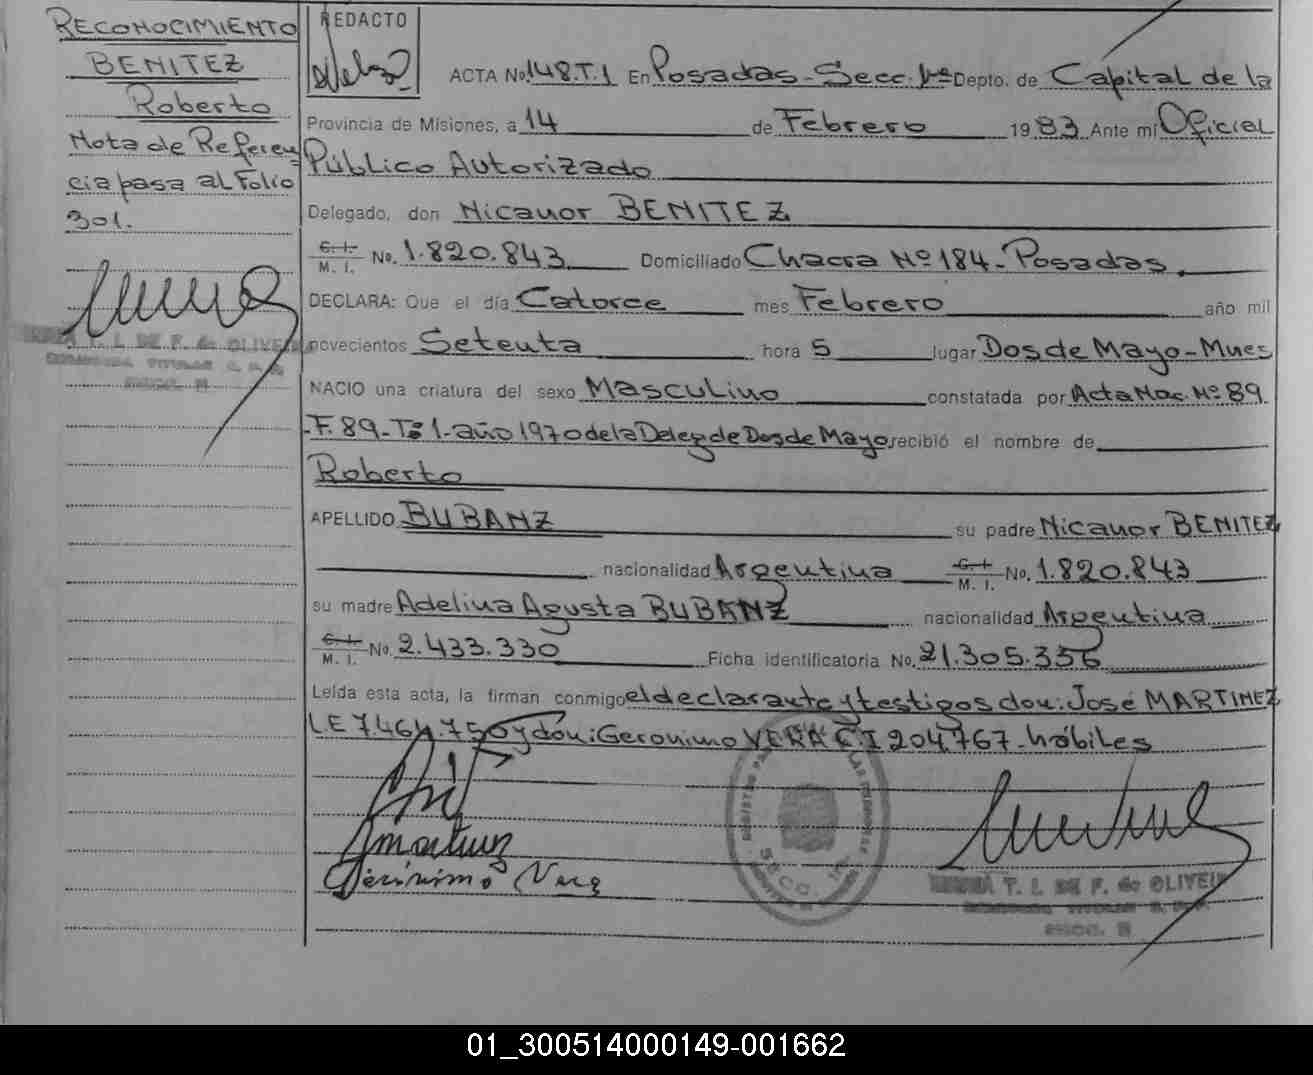 RECONOCIMIENTO
BENITEZ
Roberto
Nota de Referen
cia pasa al Folio
301.
T. I. DE F. de OLIVEIRA
TITULAR
REDACTO
ACTA No. 148.T.1 En Posadas - Secc. 1ra Depto. de Capital de la
Provincia de Misiones, a 14 de Febrero 1983 Ante mí Oficial
Público Autorizado
Delegado, don Nicanor BENITEZ
C. I.
M. I. No. 1.820.843 Domiciliado Chacra Nº 184 - Posadas.
DECLARA: Que el día Catorce mes Febrero año mil
novecientos Setenta hora 5 lugar Dos de Mayo - Mnes
NACIO una criatura del sexo Masculino constatada por Acta Nac. Nº 89
- F. 89 - Tº 1 - año 1970 de la Deleg de Dos de Mayo, recibió el nombre de
Roberto
APELLIDO BUBANZ su padre Nicanor BENITEZ
nacionalidad Argentina C. I.
M. I. No. 1.820.843
su madre Adelina Agusta BUBANZ nacionalidad Argentina
C. I.
M. I. No. 2.433.330 Ficha identificatoria No. 21.305.336
Leída esta acta, la firman conmigo el declarante y testigos don: José MARTINEZ
LE 7.464.750 y don: Geronimo VERA C.I 204.767 - hábiles
Gerónimo Vera
SECC. 1a.
T. I. DE F. de OLIVEIRA
TITULAR
01_300514000149-001662